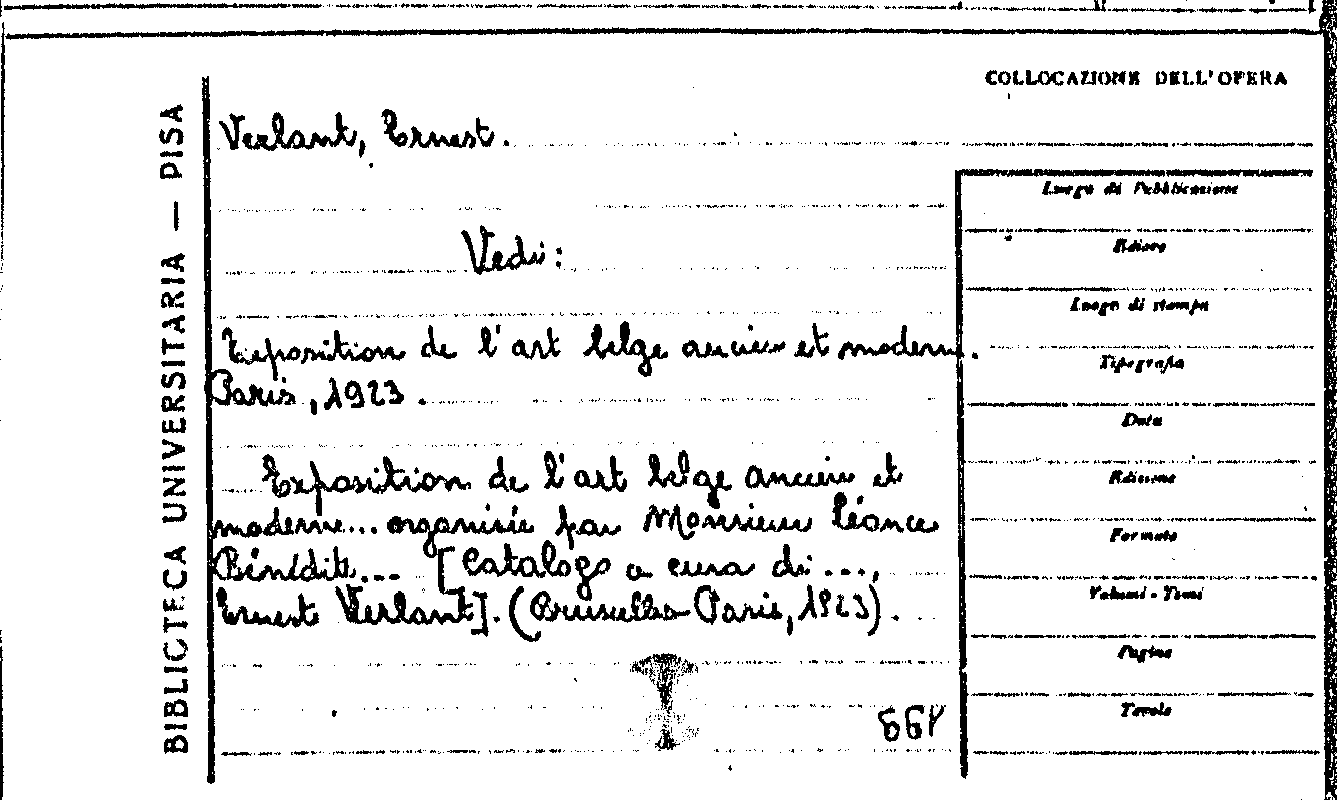 COLLOCAZIONE DELL'OPERA
BIBLIOTECA UNIVERSITARIA — PISA
Verlant, Ernest.
Vedi:
Exposition de l'art belge ancien et moderne.
Paris, 1923.
Exposition de l'art belge ancien et
moderne... organisée par Monsieur Léonce
Bénédite... [Catalogo a cura di...,
Ernest Verlant]. (Bruxelles-Paris, 1923).
Luogo di Pubblicazione
Editore
Luogo di stampa
Tipografia
Data
Edizione
Formato
Volumi - Tomi
Pagine
Tavole